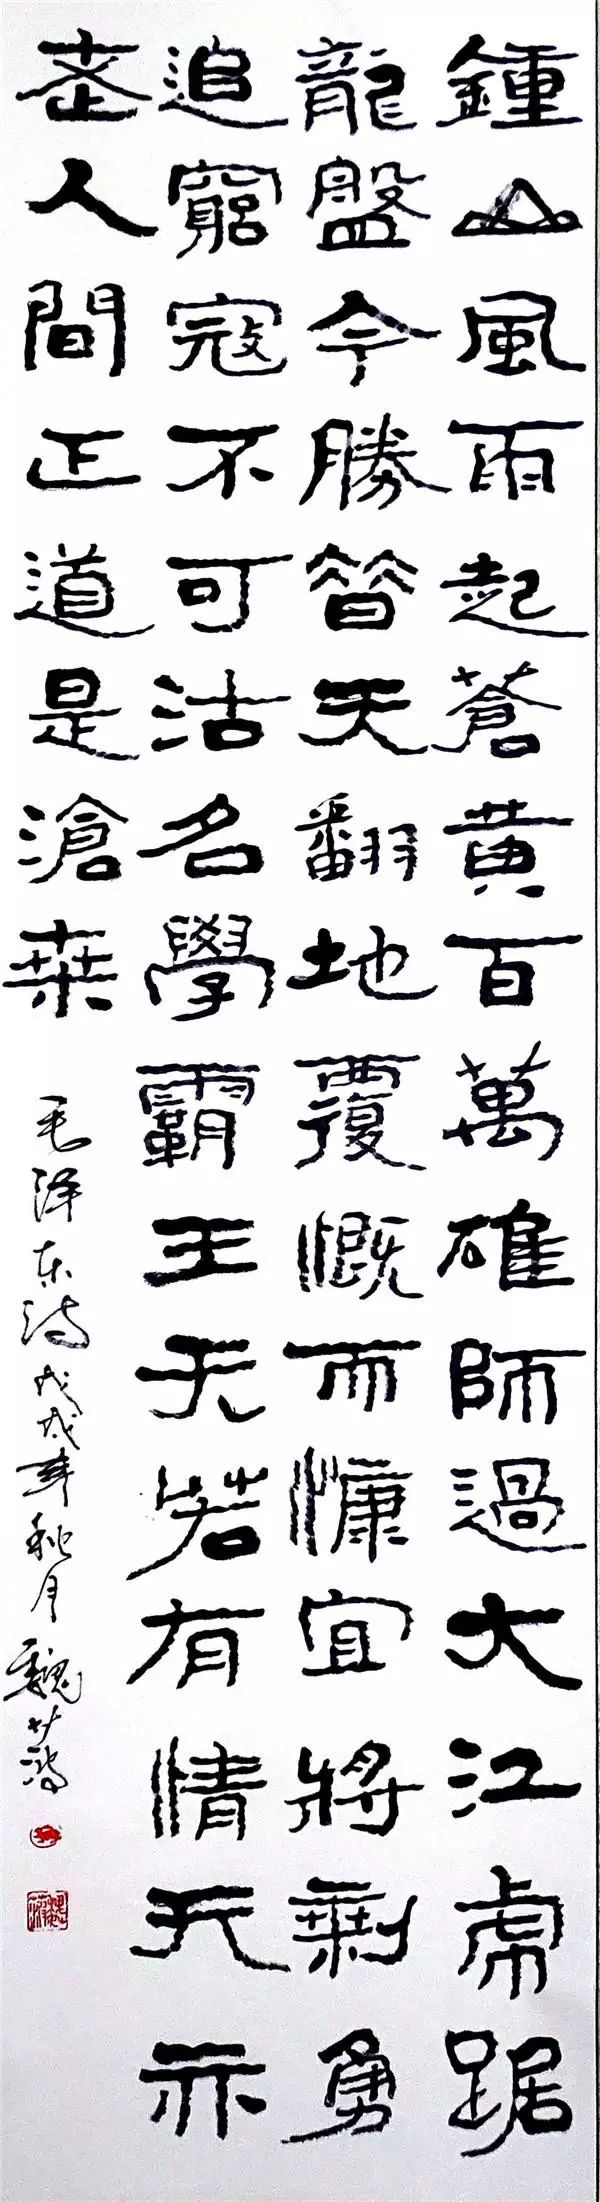 鍾山風雨起蒼黃百萬雄師過大江虎踞
龍盤今勝昔天翻地覆慨而慷宜將剩勇
追窮寇不可沽名學霸王天若有情天亦
老人間正道是滄桑
毛泽东诗戊戌年秋月魏